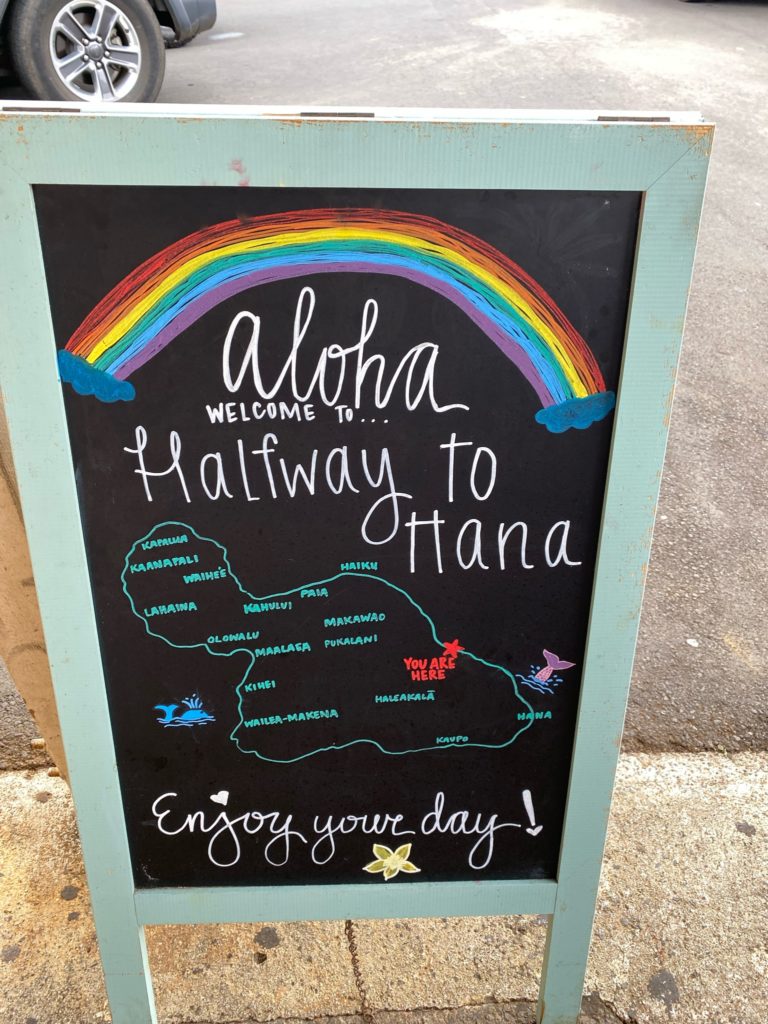 aloha
WELCOME TO...
Halfway to
Hana
KAPALUA
KAANAPALI
WAIHE'E
HAIKU
PAIA
LAHAINA
KAHULUI
MAKAWAO
OLOWALU
PUKALANI
MAALAEA
YOU ARE
HERE
KIHEI
HALEAKALĀ
WAILEA-MAKENA
HANA
KAUPO
Enjoy your day!